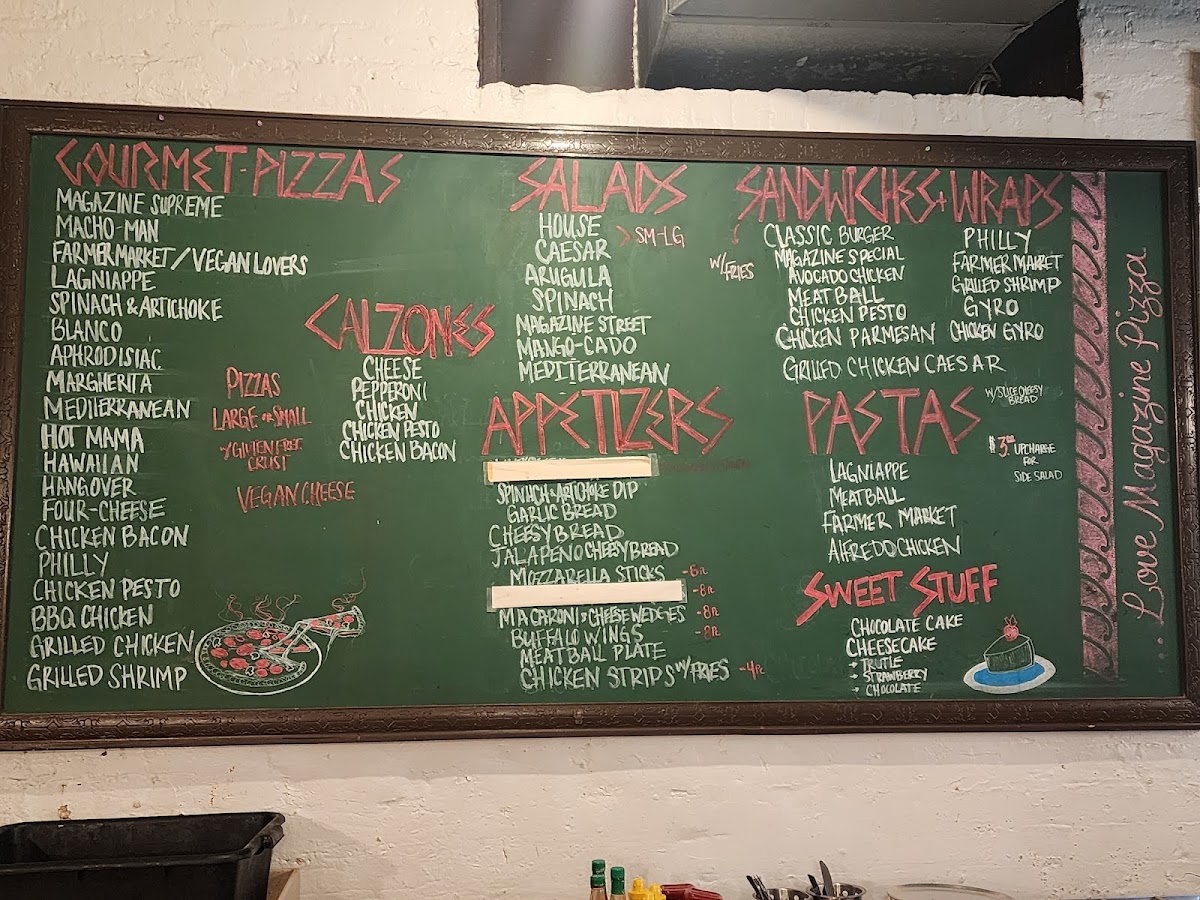 GOURMET-PIZZAS
MAGAZINE SUPREME
MACHO-MAN
FARMERMARKET/VEGAN LOVERS
LAGNIAPPE
SPINACH & ARTICHOKE
BLANCO
APHRODISIAC
MARGHERITA
MEDITERRANEAN
HOT MAMA
HAWAIIAN
HANGOVER
FOUR-CHEESE
CHICKEN BACON
PHILLY
CHICKEN PESTO
BBQ CHICKEN
GRILLED CHICKEN
GRILLED SHRIMP
PIZZAS
LARGE OR SMALL
GLUTEN FREE
CRUST
VEGAN CHEESE
CALZONES
CHEESE
PEPPERONI
CHICKEN
CHICKEN PESTO
CHICKEN BACON
SALADS
HOUSE
CAESAR
> SM-LG
ARUGULA
SPINACH
MAGAZINE STREET
MANGO-CADO
MEDITERRANEAN
APPETIZERS
SPINACH & ARTICHOKE DIP
GARLIC BREAD
CHEESY BREAD
JALAPENO CHEESY BREAD
MOZZARELLA STICKS -6PC
-8PC
MACARONI & CHEESE WEDGES -8PC
BUFFALO WINGS -8PC
MEATBALL PLATE
CHICKEN STRIPS W/FRIES -4PC
SANDWICHES + WRAPS
W/FRIES
CLASSIC BURGER
MAGAZINE SPECIAL
AVOCADO CHICKEN
MEAT BALL
CHICKEN PESTO
CHICKEN PARMESAN
GRILLED CHICKEN CAESAR
PHILLY
FARMER MARKET
GRILLED SHRIMP
GYRO
CHICKEN GYRO
PASTAS
W/SLICE CHEESY
BREAD
LAGNIAPPE
MEATBALL
FARMER MARKET
AlFREDO CHICKEN
$3.00 UPCHARGE
FOR
SIDE SALAD
SWEET STUFF
CHOCOLATE CAKE
CHEESECAKE
TRUTLE
STRAWBERRY
CHOCOLATE
...Love Magazine Pizza